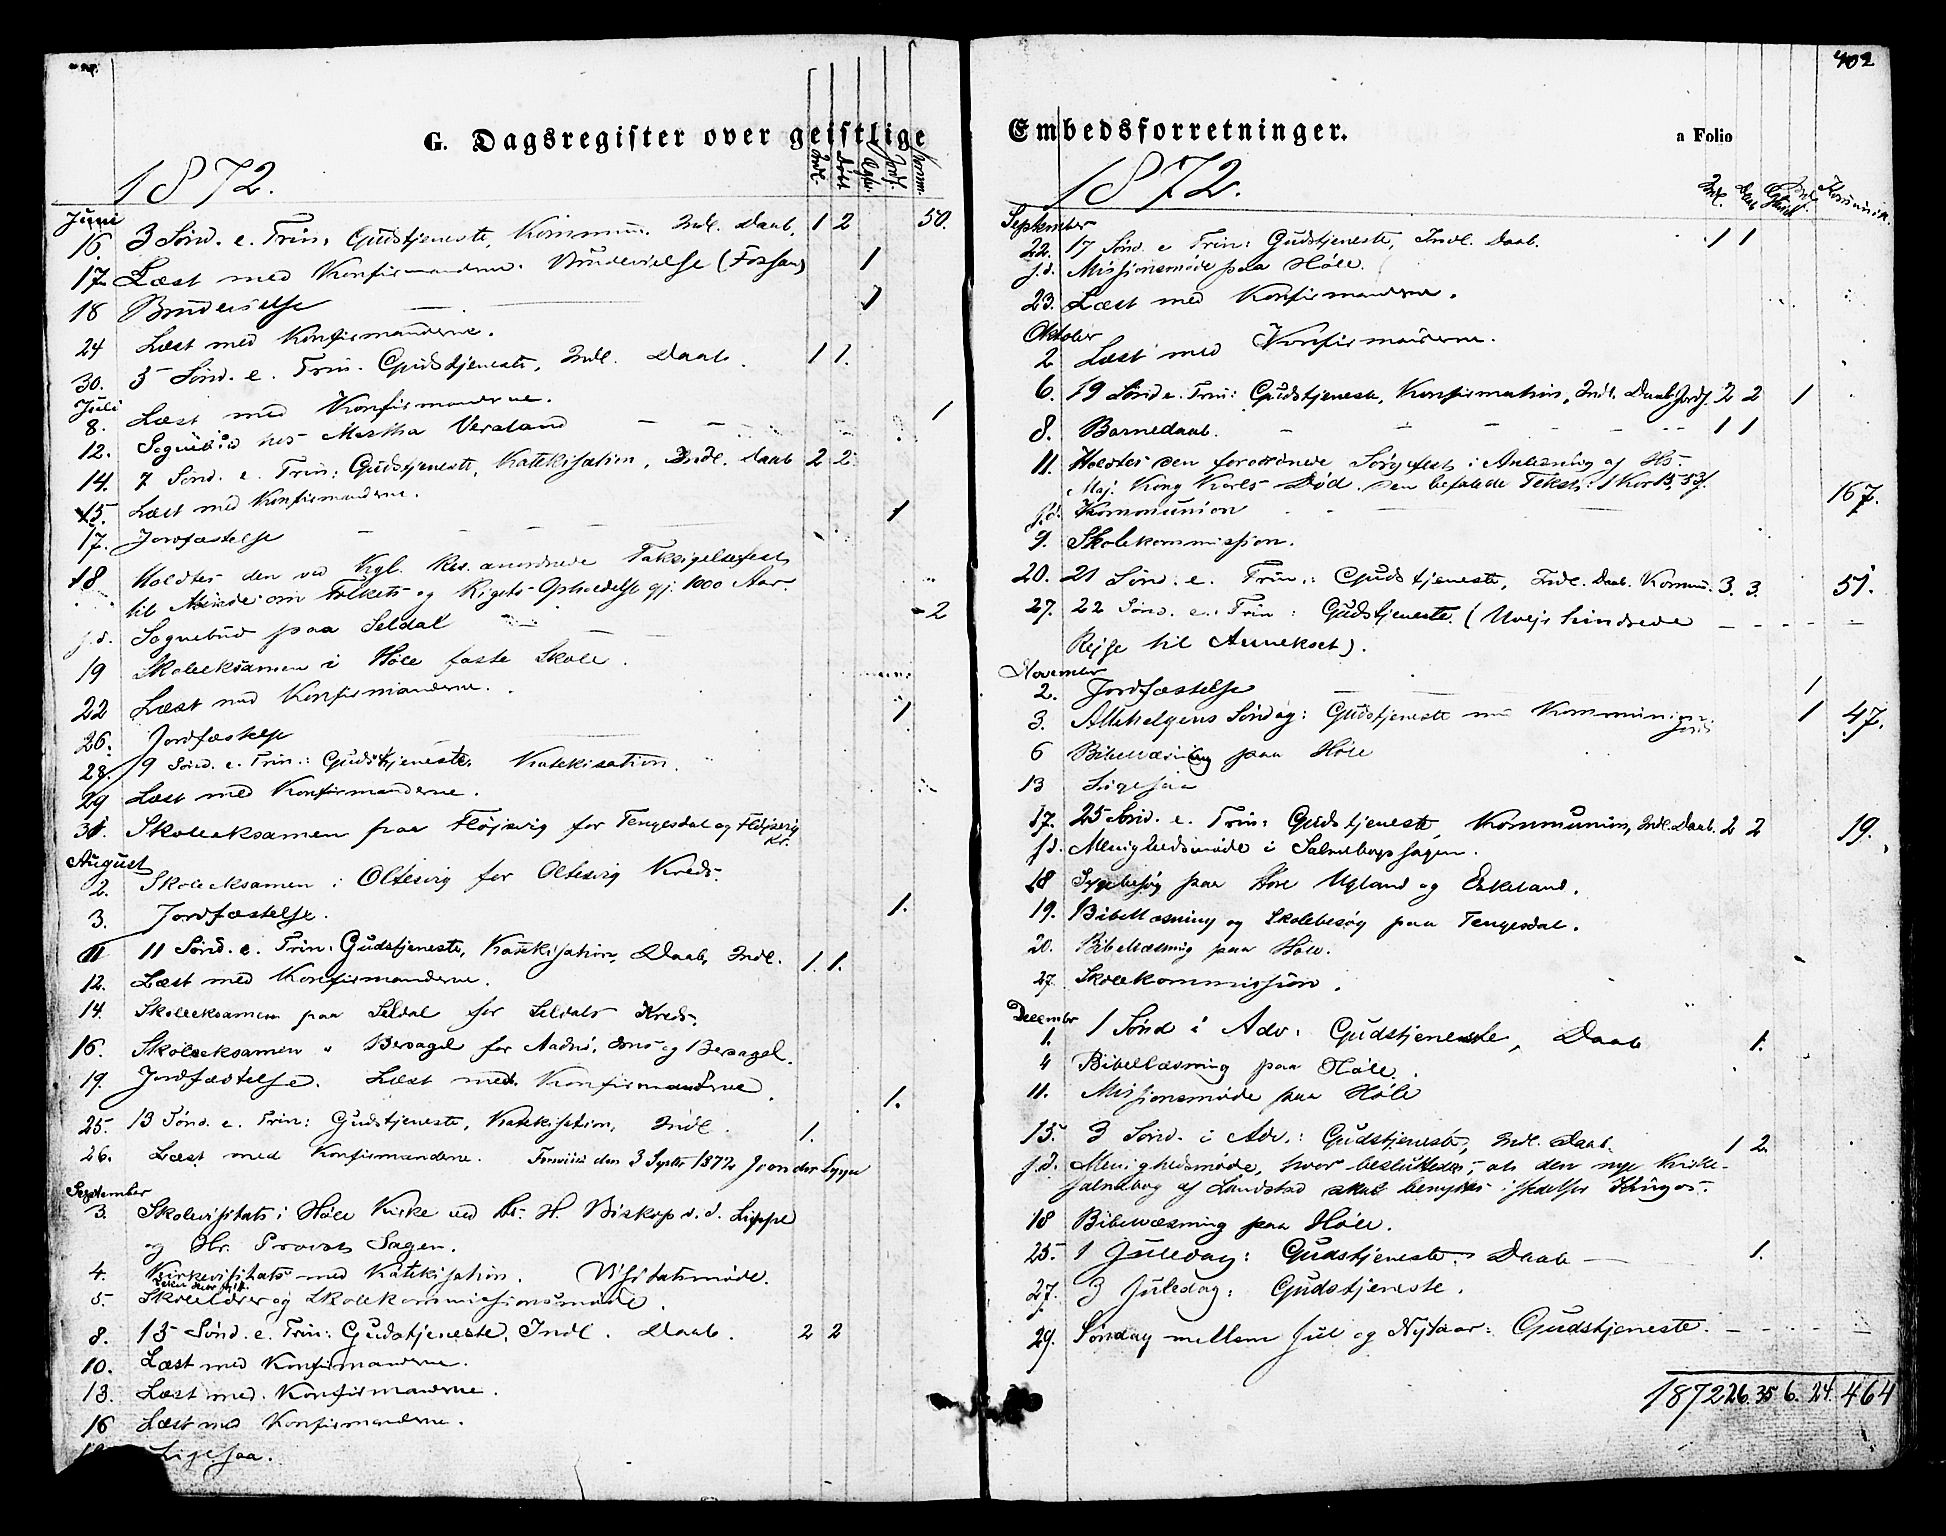 G. Dagsregister over geistlige
1872.
Indl. Døbt Jordf. Komm.
Juni
16. 3 Sønd. e. Trin: Gudstjeneste, Kommun. Indl. Daab. 1 2 50.
17. Læst med Konfirmanderne. Brudevielse (Fossan) 1
18 Brudevielse 1
24 Læst med Konfirmanderne.
30. 5 Sønd. e. Trin. Gudstjeneste, Indl. Daab. 1 1.
Juli
8. Læst med Konfirmanderne.
12. Sognebud hos Martha Versland 1
14. 7 Sønd. e. Trin: Gudstjeneste, Katekisation, Indl. Daab 2 2.
15. Læst med Konfirmanderne.
17. Jordfæstelse 1
18 Holdtes den ved Kgl. Res. anordnede Taksigelsesfest
til Minde om Folkets og Rigets Opholdelse gj. 1000 Aar.
s.d. Sognebud paa Seldal 2
19 Skoleeksamen i Høle faste Skole.
22 Læst med Konfirmanderne.
26. Jordfæstelse 1
28. 9 Sønd. e. Trin.: Gudstjeneste. Katekisation.
29 Læst med Konfirmanderne.
31. Skoleeksamen paa Fløjsvig for Tengesdal og Fløjsvig Kr.
August
2. Skoleeksamen i Oltesvig for Oltesvig Kreds.
3. Jordfæstelse. 1.
11 11 Sønd. e. Trin: Gudstjeneste, Katekisation, Daab, Indl. 1. 1.
12. Læst med Konfirmanderne.
14. Skoleeksamen paa Seldal for Seldals Kreds.
16. Skoleeksamen " Bersagel for Aadnø, og Bersagel.
19. Jordfæstelse. Læst med Konfirmanderne. 1.
25. 13 Sønd. e. Trin: Gudstjeneste, Katekisation, Indl. 1.
26. Læst med Konfirmanderne. den 3 Septbr 1872 J von der Lippe
September
3. Skolevisitats i Høle Kirke ved Hr. H. Biskop v. d. Lippe
og Hr. Provst Sagen.
4. Kirkevisitats med Katekisation. Visitatsmøde.
5. Skolelærer og Skolekommissionsmøde.
8. 15 Sønd. e. Trin: Gudstjeneste, Indl. Daab. 2 2
10. Læst med Konfirmanderne.
13. Læst med Konfirmanderne.
16 Læst med Konfirmanderne.
Ligesaa.
402
Embedsforretninger.
a Folio
1872.
September
22. 17 Sønd. e Trin: Gudstjeneste, Indl. Daab. 1 1
s.d. Missionsmøde paa Høle.
23. Læst med Konfirmanderne.
Oktober
2 Læst med Konfirmanderne.
6. 19 Sønd e. Trin: Gudstjeneste, Konfirmation, Indl. Daab Jordf. 2 2 1
8. Barnedaab. 1 1
11. Holdtes den forordnede Sørgefest i Anledning af Hs.
Maj. Kong Karls Død. Den befalede Tekst: 1 Kor 15, 53 f.
s.d. Kommunion 167.
9. Skolekommission.
20. 21 Sønd. e. Trin.: Gudstjeneste, Indl. Daab. Kommun. 3. 3. 51.
27. 22 Sønd. e. Trin: Gudstjeneste. (Uvejr hindrede
Rejse til Annekset).
November
2. Jordfæstelse 1
3. Allehelgens Søndag: Gudstjeneste med Kommunion. Jordf. 1 47.
6 Bibellæsning paa Høle
13 Ligesaa
17. 25 Sønd. e. Trin: Gudstjeneste, Kommunion, Indl. Daab. 2 2 19.
s.d. Menighedsmøde i Salmebogssagen.
18 Sygebesøg paa Høle Ugland og Eskeland.
19. Bibellæsning og Skolebesøg paa Tengesdal.
20. Bibellæsning paa Høle.
27. Skolekommission.
December
1. 1 Sønd i Adv: Gudstjeneste, Daab 1.
4 Bibellæsning paa Høle.
11. Missionsmøde paa Høle
15. 3 Sønd. i Adv.: Gudstjeneste, Indl. Daab. 1 2.
s.d. Menighedsmøde, hvor besluttedes, at den nye Kirke-
salmebog af Landstad skal benyttes istedetfor Kingos.
18 Bibellæsning paa Høle.
25. 1 Juledag: Gudstjeneste. Daab 1.
27. 3 Juledag: Gudstjeneste.
29. Søndag mellem Jul og Nytaar: Gudstjeneste.
1872 26. 35 6. 24. 464